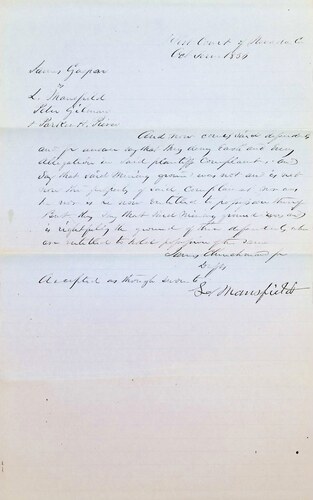 Dist Court of Nevada Co
Oct Term 1854
James Gaspar
vs
L. Mansfield
Peter Gilman
& Parker H.
And now comes said defendants
and for answer say that they deny each and every
allegation in said plaintiffs Complaint &
say that said Mining ground was not and is not
now the property of said Complainant nor was
he nor is he now entitled to possession thereof
But they say that said Mining ground was and
is rightfully the ground of these defendants who
are entitled to hold possession of the same
James Churchman for
Defts
Accepted as though sworn to
L. Mansfield